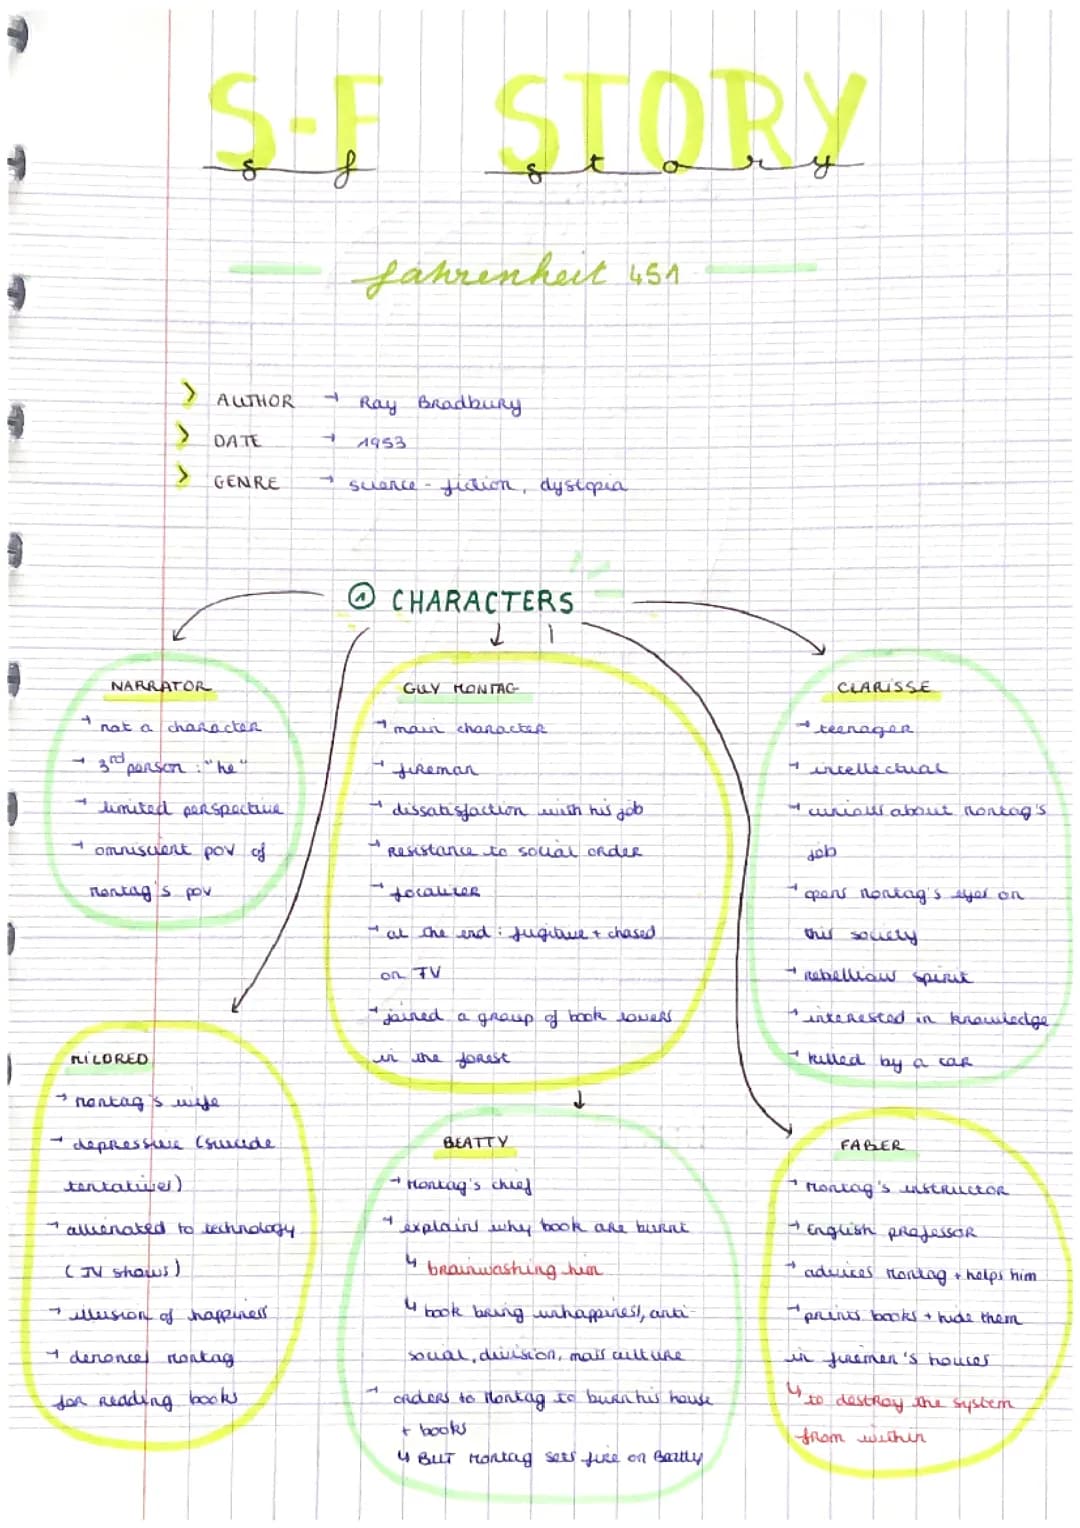 S-F STORY
sf story
fahrenheit 451
> AUTHOR → Ray Bradbury
> DATE → 1953
> GENRE → science-fiction, dystopia
① CHARACTERS
NARRATOR
→ not a character
→ 3rd person : "he"
→ limited perspective
→ omniscient pov of
Montag's pov
GUY MONTAG
→ main character
→ fireman
→ dissatisfaction with his job
→ Resistance to social order
→ focalizer
→ at the end : fugitive + chased
on TV
→ joined a group of book lovers
in the forest
CLARISSE
→ teenager
→ intellectual
→ curious about Montag's
job
→ opens Montag's eyes on
this society
→ rebellious spirit
→ interested in knowledge
→ killed by a car
MILDRED
→ Montag's wife
→ depressive (suicide
tentatives)
→ alienated to technology
(TV shows)
→ illusion of happiness
→ denonces Montag
for reading books
BEATTY
→ Montag's chief
→ explains why book are burnt
↳ brainwashing him
↳ book bring unhappiness, anti-
social, division, mass culture
→ orders to Montag to burn his house
+ books
↳ BUT Montag sets fire on Beatty
FABER
→ Montag's instructor
→ English professor
→ advices Montag + helps him
→ prints books + hide them
in firemen's houses
↳ to destroy the system
from within